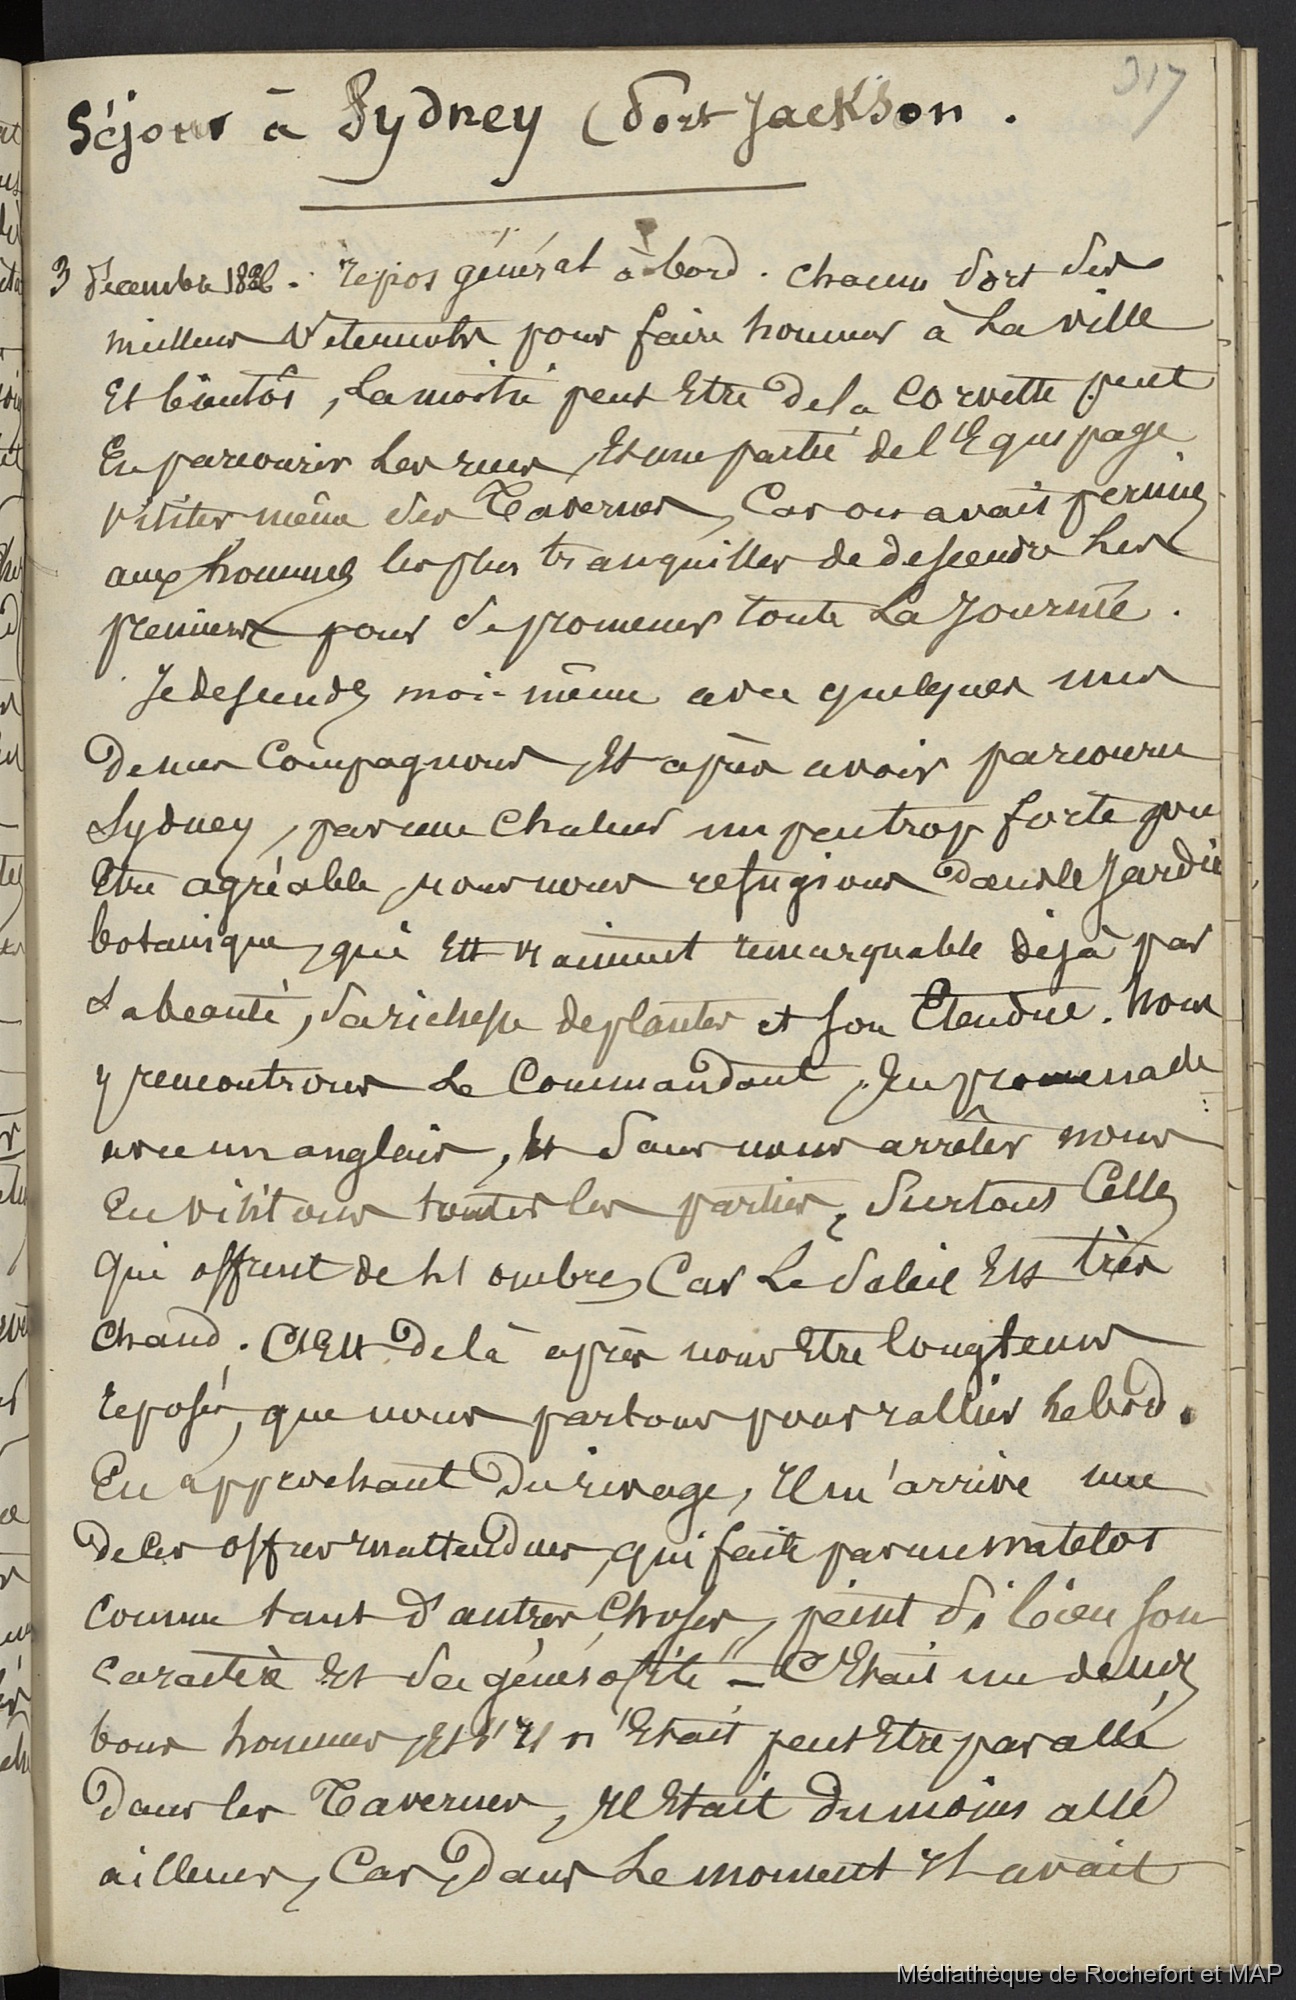 317
Séjour à Sydney (Port Jackson.
3 décembre 1826. repos général à bord. chacun sort ses
meilleurs vetements pour faire honneur à la ville
Et bientôt, la moitié peut Etre de la Corvette peut
En parcourir les rues, Et une partie de l'Equipage
visiter même des Tavernes, Car on avait permis
aux hommes les plus tranquilles de descendre les
premiers pour se promener toute la journée.
Je descends moi-même avec quelques uns
de mes Compagnons, Et après avoir parcouru
Sydney, par une Chaleur un peu trop forte pour
Etre agréable, nous nous refugions dans le Jardin
botanique, qui Est vraiment remarquable déjà par
sa beauté, sa richesse de plantes et son Etendue. nous
y rencontrons le Commandant, En promenade
avec un anglais, Et sans nous arrêter nous
En visitons toutes les parties, surtout Celles
qui offrent de l'ombre, Car le soleil Est très
chaud. C'Est de là après nous Etre longtems
reposés, que nous partons pour rallier le bord.
En approchant du rivage, Il m'arrive une
de ces offres inattendues, qui faite par un matelot
comme tant d'autres choses, peint si bien son
caractère Et sa générosité – C'Etait un de nos
bons hommes, Et s'Il n'Etait peut Etre pas allé
dans les Tavernes, Il Etait du moins allé
ailleurs, Car, dans le moment Il avait
Médiathèque de Rochefort et MAP